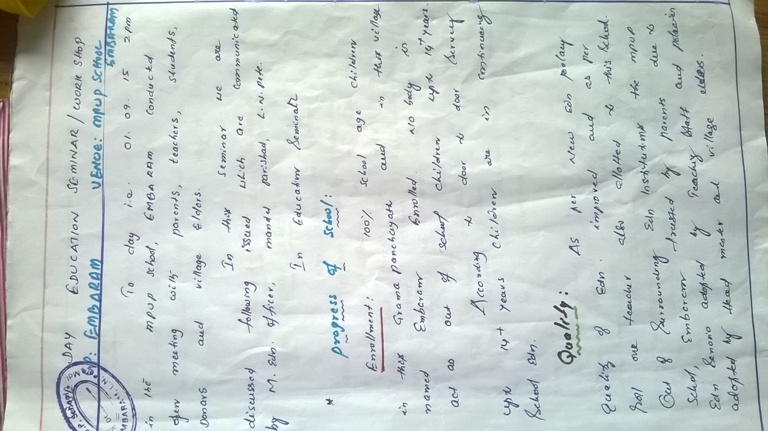 DAY EDUCATION SEMINAR / WORK SHOP
G.P: EMBARAM VENUE: MPUP SCHOOL
EMBARAM
To day i.e. 01.09.15 2pm
in the MPUP School, EMBARAM conducted
open meeting with parents, teachers, students,
Donars and village Elders.
In this seminar we are
discussed following issued which are communicated
by M. Edn. officer, mandal parishad, L.N. Pet.
In Education Seminar
* Progress of School:
Enrollment: 100% School age children
in this Grama panchayat and in this village
named Embaram Enrolled NO body is
act as out of School children upto 14+ years.
According to door to door Survey
upto 14+ years children are in continueing
School Edn.
Quality: As per New Edn policy
Quality of Edn. improved and as per
one teacher also allotted to this School.
Out of Surrounding Edn Institutions the MPUP
School, Embaram trusted by parents due to
Edn adopted by Teaching Staff and
adopted by Head master and village elders.